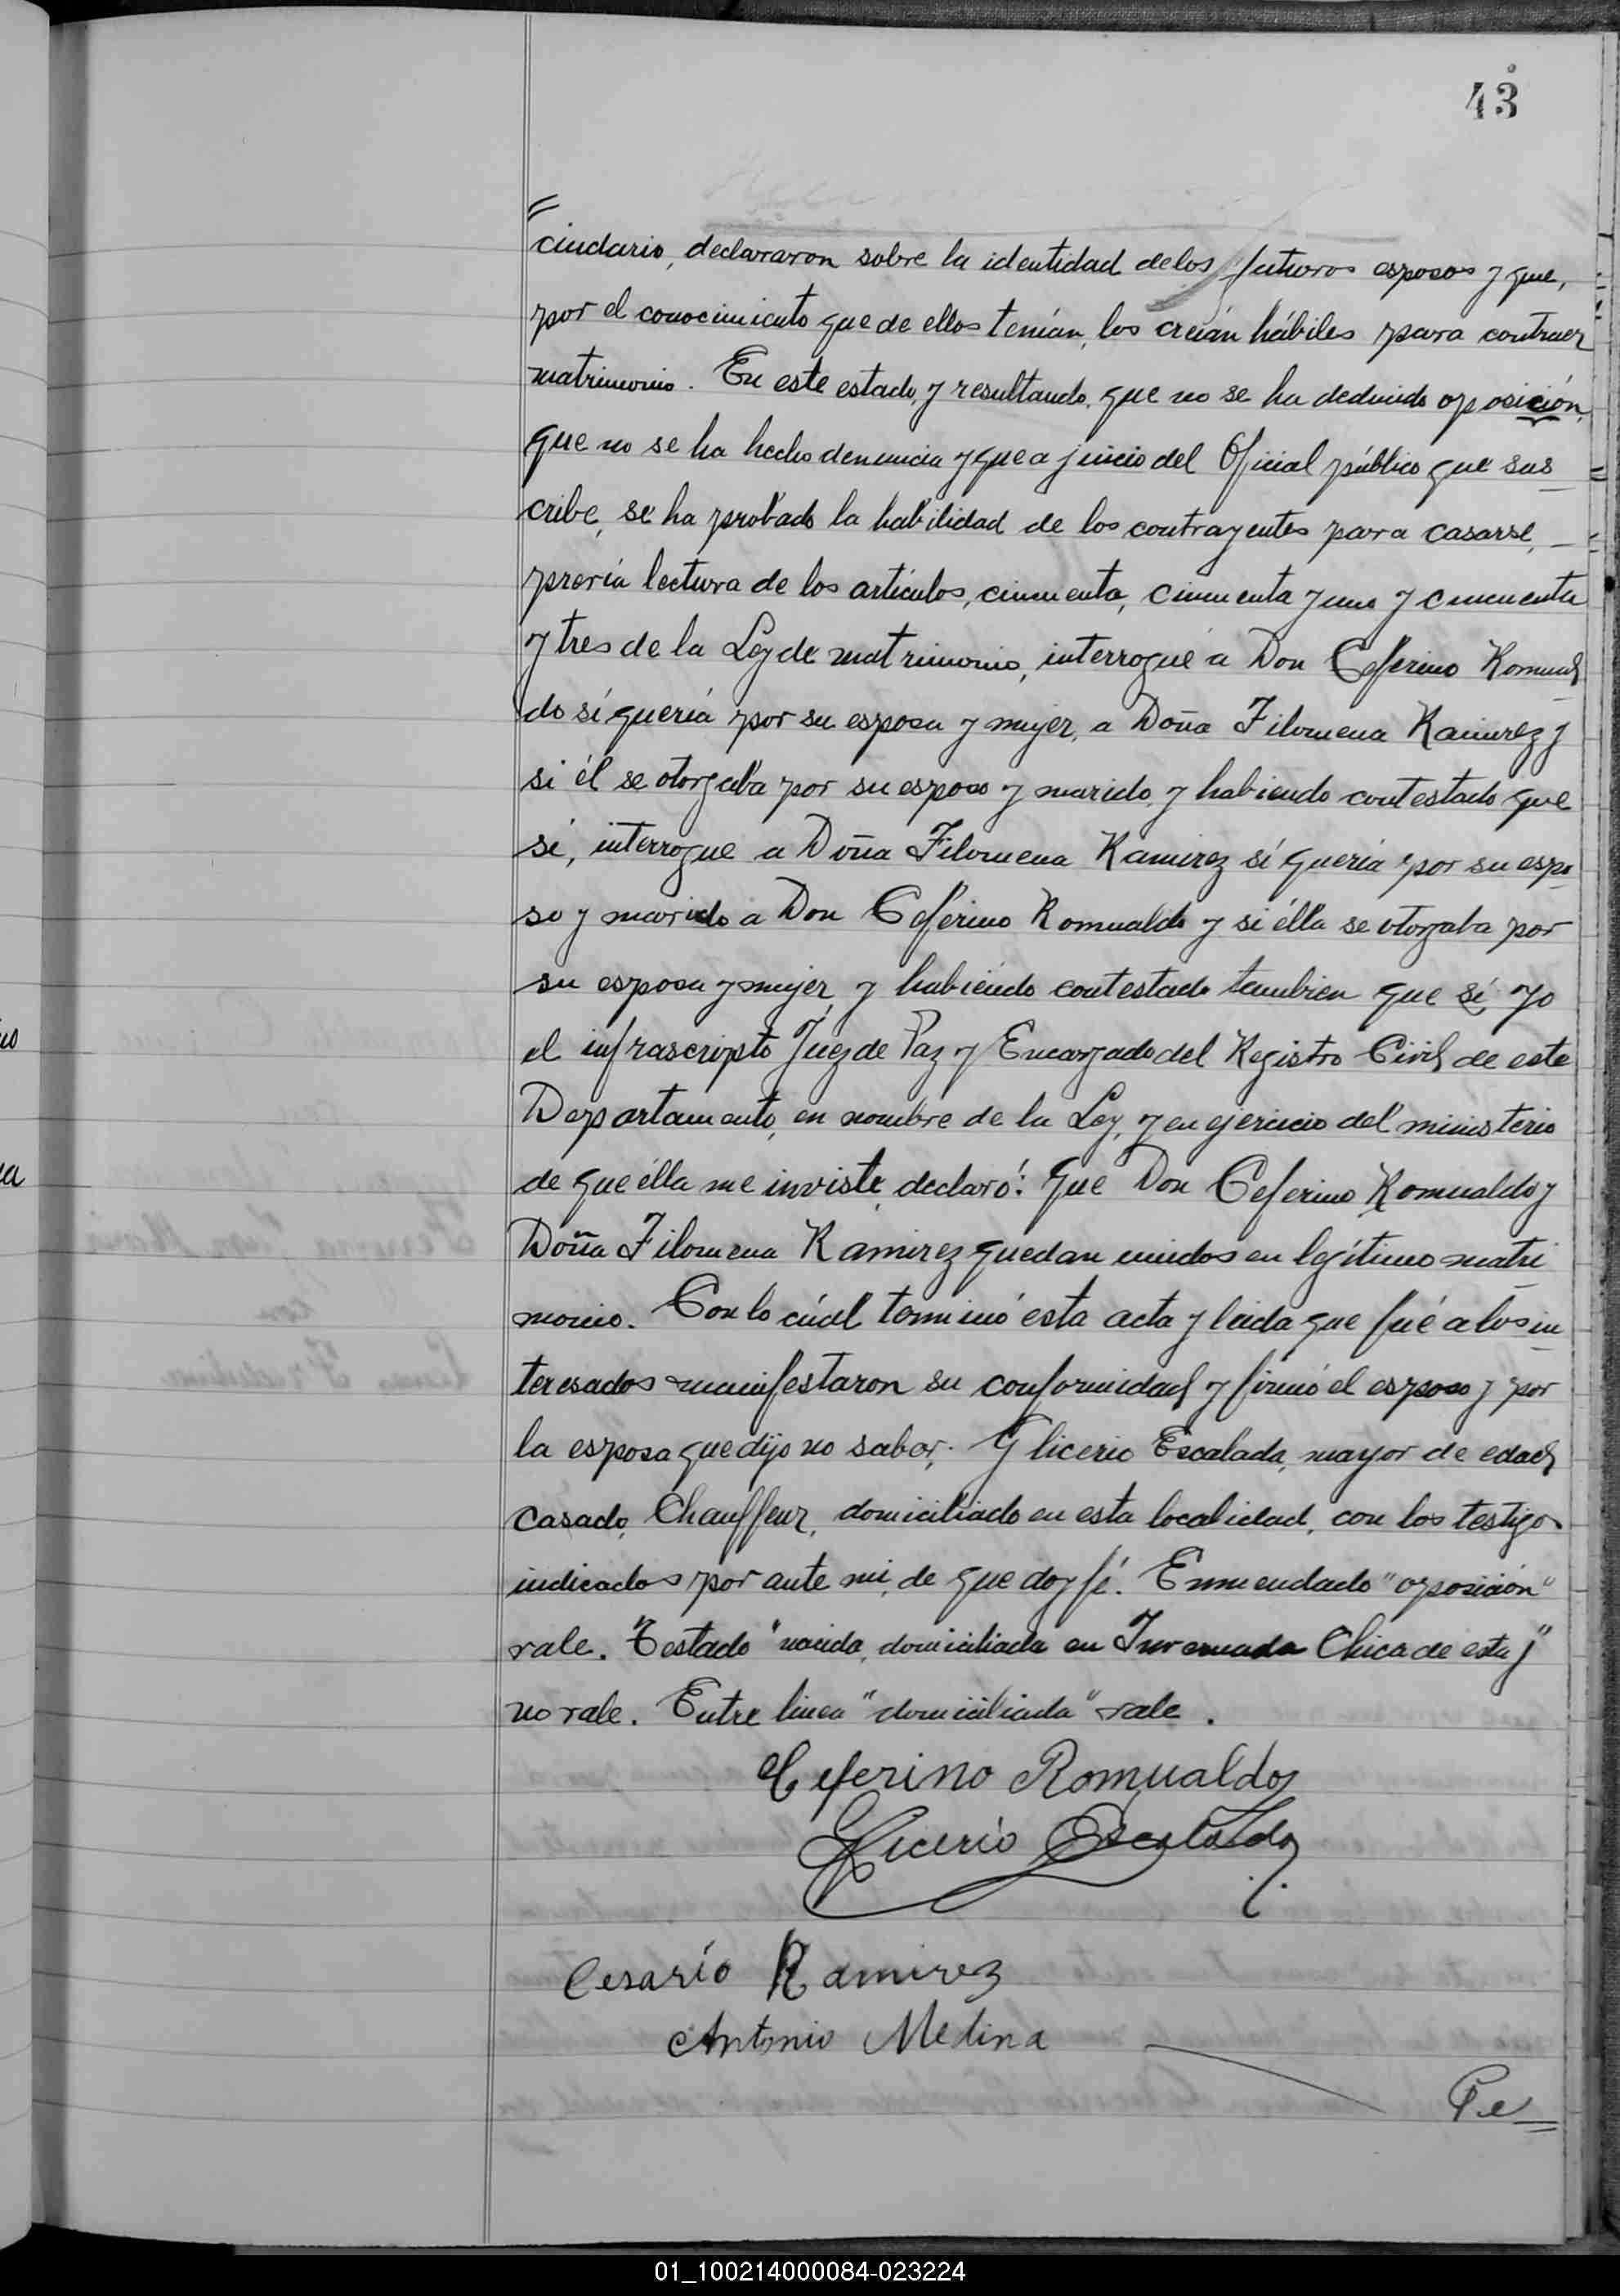 43
ciudario, declararon sobre la identidad de los futuros esposos y que,
por el conocimiento que de ellos tenían, los creían hábiles para contraer
matrimonio. En este estado, y resultando, que no se ha deducido oposición,
que no se ha hecho denuncia y que a juicio del Oficial público que sus
cribe, se ha probado la habilidad de los contrayentes para casarse, —
previa lectura de los artículos, cincuenta, cincuenta y uno y cincuenta
y tres de la Ley de matrimonio, interrogué a Don Ceferino Romual
do sí quería por su esposa y mujer, a Doña Filomena Ramirez y
si él se otorgaba por su esposo y marido, y habiendo contestado que
sí, interrogue a Doña Filomena Ramirez sí quería por su espo
so y marido a Don Ceferino Romualdo y si élla se otorgaba por
su esposa y mujer, y habiendo contestado tambien que sí, yo
el infrascripto Juez de Paz y Encargado del Registro Civil de este
Departamento, en nombre de la Ley, y en ejercicio del ministerio
de que élla me inviste, declaró: Que Don Ceferino Romualdo y
Doña Filomena Ramirez quedan unidos en legítimo matri
monio. Con lo cúal terminó esta acta y leida que fué a los in
teresados manifestaron su conformidad y firmó el esposo y por
la esposa que dijo no saber, Glicerio Escalada, mayor de edad,
casado, Chauffeur, domiciliado en esta localidad, con los testigos
indicados por ante mi, de que doy fé. Enmendado "oposición"
vale. Testado "nacida, domiciliada en Invernada Chica de esta j"
no vale. Entre linea "domiciliada" vale.
Ceferino Romualdo
Glicerio Escalada
Cesarío Ramirez
Antonio Medina
01_100214000084-023224